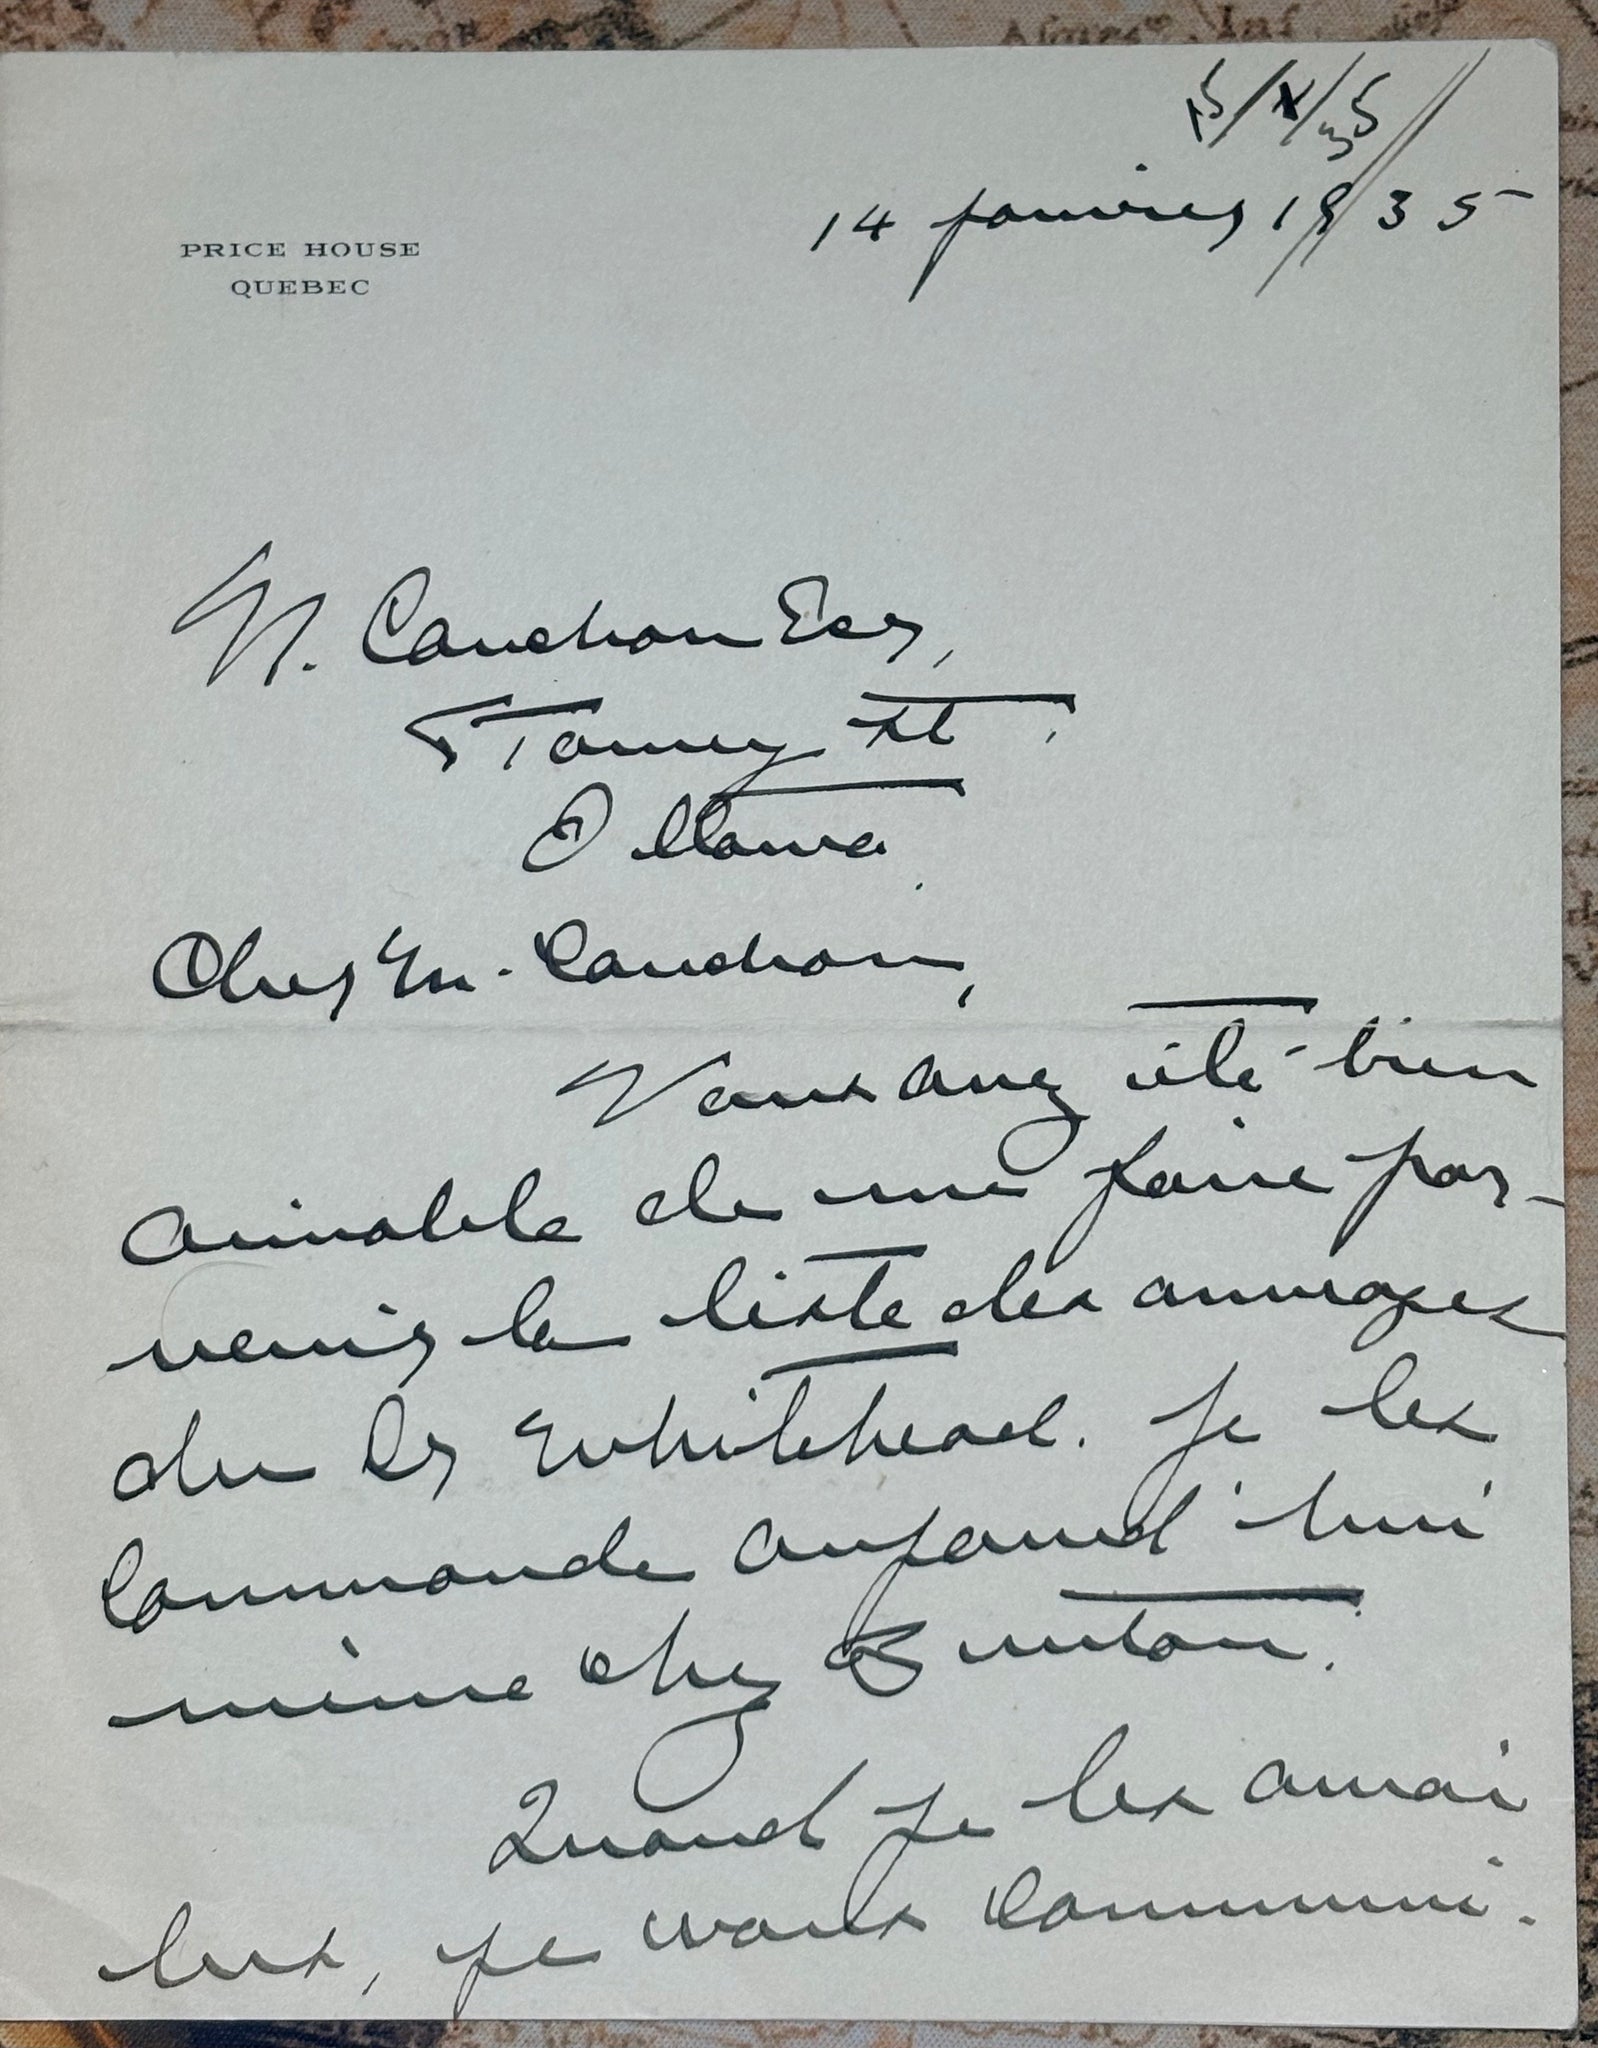 15/X/35
14 janvier 1935
PRICE HOUSE
QUEBEC
N. Cauchon Esq,
St
Ottawa.
Cher M. Cauchon,
Vous avez été bien
aimable de me faire par-
venir la liste des ouvrages
du Dr Whitehead. Je les
commande aujourd'hui
même chez
Quand je les aurai
lus, je vous communi-